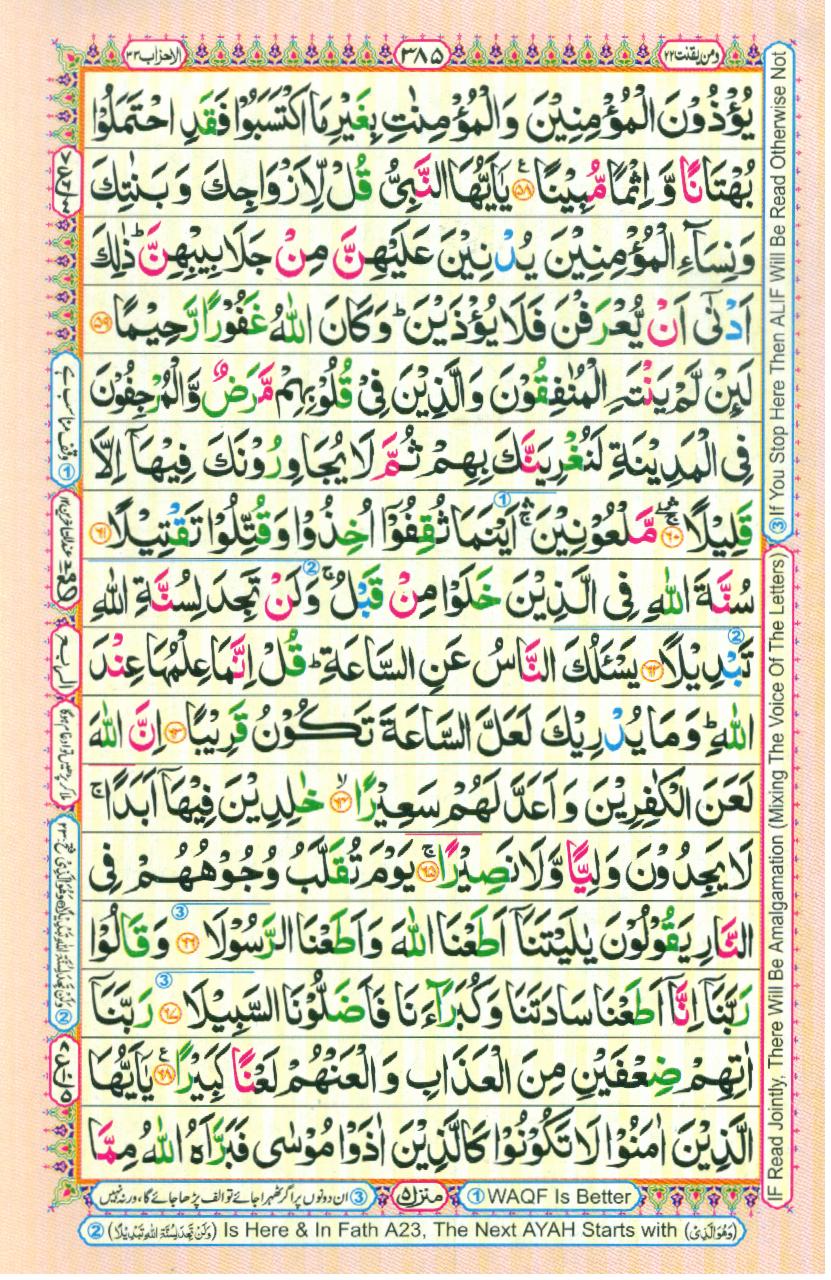 ومن يقنت ٢٢
٣٨٥
الاحزاب ٣٣
يُؤْذُوْنَ الْمُؤْمِنِيْنَ وَالْمُؤْمِنٰتِ بِغَيْرِ مَا اكْتَسَبُوْا فَقَدِ احْتَمَلُوْا
بُهْتَانًا وَّ اِثْمًا مُّبِيْنًا ۟ ﴿٥٨﴾ يٰۤاَيُّهَا النَّبِيُّ قُلْ لِّاَزْوَاجِكَ وَ بَنٰتِكَ
وَنِسَآءِ الْمُؤْمِنِيْنَ يُدْنِيْنَ عَلَيْهِنَّ مِنْ جَلَابِيْبِهِنَّ ؕ ذٰلِكَ
اَدْنٰۤى اَنْ يُّعْرَفْنَ فَلَا يُؤْذَيْنَ ؕ وَكَانَ اللّٰهُ غَفُوْرًا رَّحِيْمًا ﴿٥٩﴾
لَئِنْ لَّمْ يَنْتَهِ الْمُنٰفِقُوْنَ وَالَّذِيْنَ فِيْ قُلُوْبِهِمْ مَّرَضٌ وَّالْمُرْجِفُوْنَ
فِى الْمَدِيْنَةِ لَنُغْرِيَنَّكَ بِهِمْ ثُمَّ لَا يُجَاوِرُوْنَكَ فِيْهَاۤ اِلَّا
قَلِيْلًا ﴿٦٠﴾ مَّلْعُوْنِيْنَ ۛۚ اَيْنَمَا ثُقِفُوْۤا اُخِذُوْا وَقُتِّلُوْا تَقْتِيْلًا ﴿٦١﴾
سُنَّةَ اللّٰهِ فِى الَّذِيْنَ خَلَوْا مِنْ قَبْلُ ۚ وَلَنْ تَجِدَ لِسُنَّةِ اللّٰهِ
تَبْدِيْلًا ﴿٦٢﴾ يَسْـَٔلُكَ النَّاسُ عَنِ السَّاعَةِ ؕ قُلْ اِنَّمَا عِلْمُهَا عِنْدَ
اللّٰهِ ؕ وَمَا يُدْرِيْكَ لَعَلَّ السَّاعَةَ تَكُوْنُ قَرِيْبًا ﴿٦٣﴾ اِنَّ اللّٰهَ
لَعَنَ الْكٰفِرِيْنَ وَ اَعَدَّ لَهُمْ سَعِيْرًا ﴿٦٤﴾ۙ خٰلِدِيْنَ فِيْهَاۤ اَبَدًا ۚ
لَا يَجِدُوْنَ وَلِيًّا وَّلَا نَصِيْرًا ﴿٦٥﴾ۚ يَوْمَ تُقَلَّبُ وُجُوْهُهُمْ فِى
النَّارِ يَقُوْلُوْنَ يٰلَيْتَنَاۤ اَطَعْنَا اللّٰهَ وَاَطَعْنَا الرَّسُوْلَا ﴿٦٦﴾ وَقَالُوْا
رَبَّنَاۤ اِنَّاۤ اَطَعْنَا سَادَتَنَا وَكُبَرَآءَنَا فَاَضَلُّوْنَا السَّبِيْلَا ﴿٦٧﴾ رَبَّنَاۤ
اٰتِهِمْ ضِعْفَيْنِ مِنَ الْعَذَابِ وَالْعَنْهُمْ لَعْنًا كَبِيْرًا ﴿٦٨﴾ يٰۤاَيُّهَا
الَّذِيْنَ اٰمَنُوْا لَا تَكُوْنُوْا كَالَّذِيْنَ اٰذَوْا مُوْسٰى فَبَرَّاَهُ اللّٰهُ مِمَّا
③ If You Stop Here Then ALIF Will Be Read Otherwise Not
IF Read Jointly, There Will Be Amalgamation (Mixing The Voice Of The Letters)
① وقف مناسب ہے
② وَلَنْ تَجِدَ لِسُنَّةِ اللّٰهِ تَبْدِيْلًا
① WAQF Is Better
منزل ٥
③ ان دونوں پر اگر ٹھہرا جائے تو الف پڑھا جائے گا، ورنہ نہیں
② (وَلَنْ تَجِدَ لِسُنَّةِ اللّٰهِ تَبْدِيْلًا) Is Here & In Fath A23, The Next AYAH Starts with (وَهُوَ الَّذِيْ)